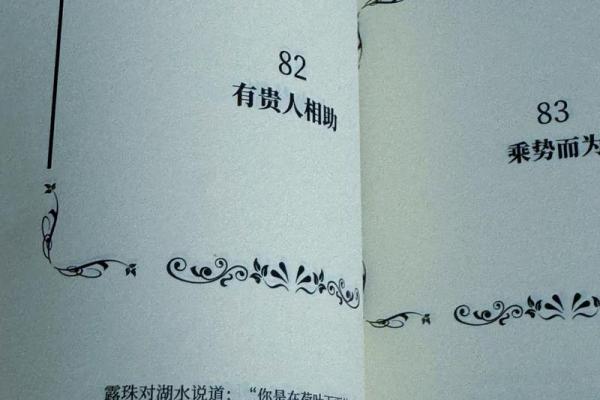 82
有贵人相助
露珠对湖水说道：“你是在荷叶下面
83
乘势而为